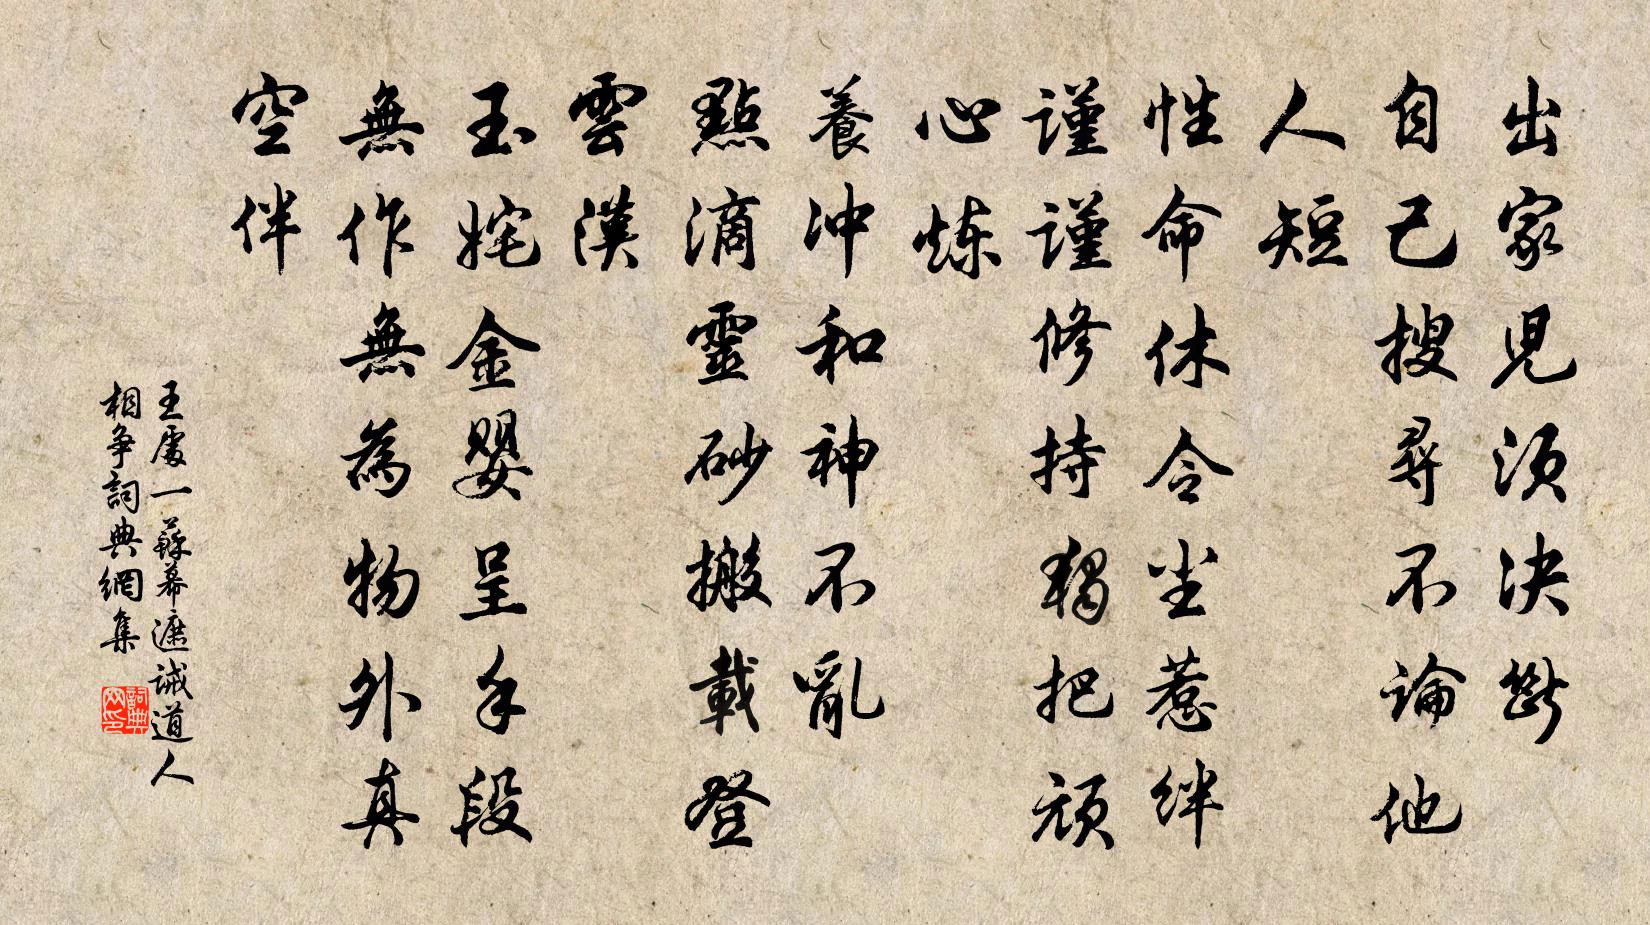 出家兒須決斷
自己搜尋不論他
人短
性命休令尘惹絆
謹謹修持獨把頑
心炼
養沖和神不亂
點滴靈砂搬載登
雲漢
玉姹金嬰呈手段
無作無為物外真
空伴
王處一蘇幕遮誡道人
相争詞典網集
詞典
网印